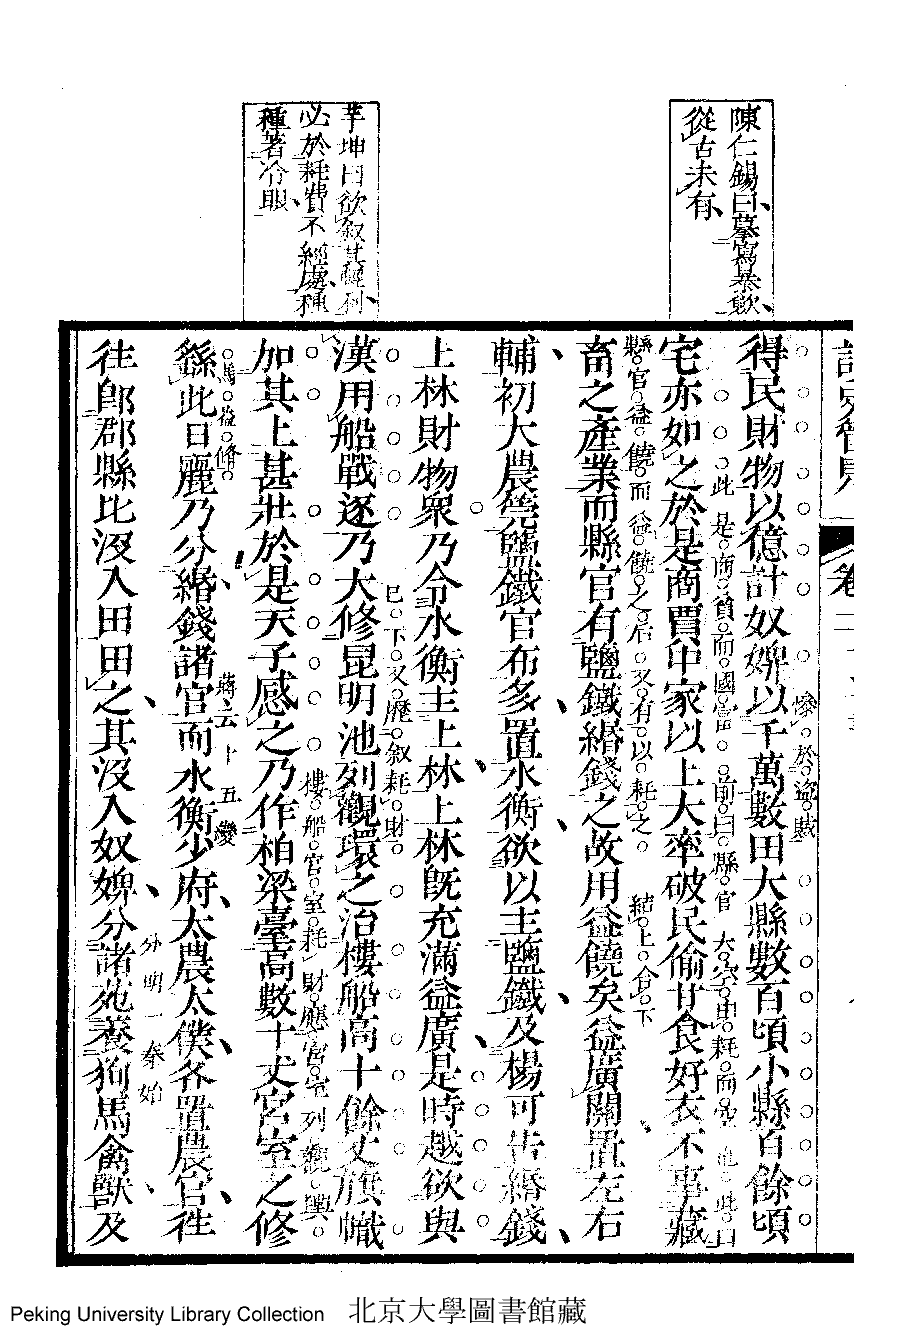 陳仁錫曰摹寫暴歛
從古未有
茅坤曰欲叙其
必於耗費不經處種
種著冷眼
卷
得民財物以億計奴婢以千萬數田大縣數百頃小縣百餘頃
慘於盜賊
宅亦如之於是商賈中家以上大率破民偷甘食好衣不事藏
此是商貧而國富前曰縣官大空由耗而空此曰
畜之產業而縣官有鹽鐵緡錢之故用益饒矣益廣關置左右
縣官益饒而益饒之后又有以耗之結上食下
輔初大農筦鹽鐵官布多置水衡欲以主鹽鐵及楊可告緡錢
上林財物衆乃令水衡主上林上林旣充滿益廣是時越欲與
漢用船戰逐乃大修昆明池列觀環之治樓船高十餘丈旗幟
已下又歷叙耗財
加其上甚壯於是天子感之乃作柏梁臺高數十丈宮室之修
樓船官室耗財應宮室列觀輿
繇此日麗乃分緡錢諸官而水衡少府太農太僕各置農官徃
蔣云十五變
徃郎郡縣比沒入田田之其沒入奴婢分諸苑養狗馬禽獸及
分明一秦始
Peking University Library Collection 北京大學圖書館藏